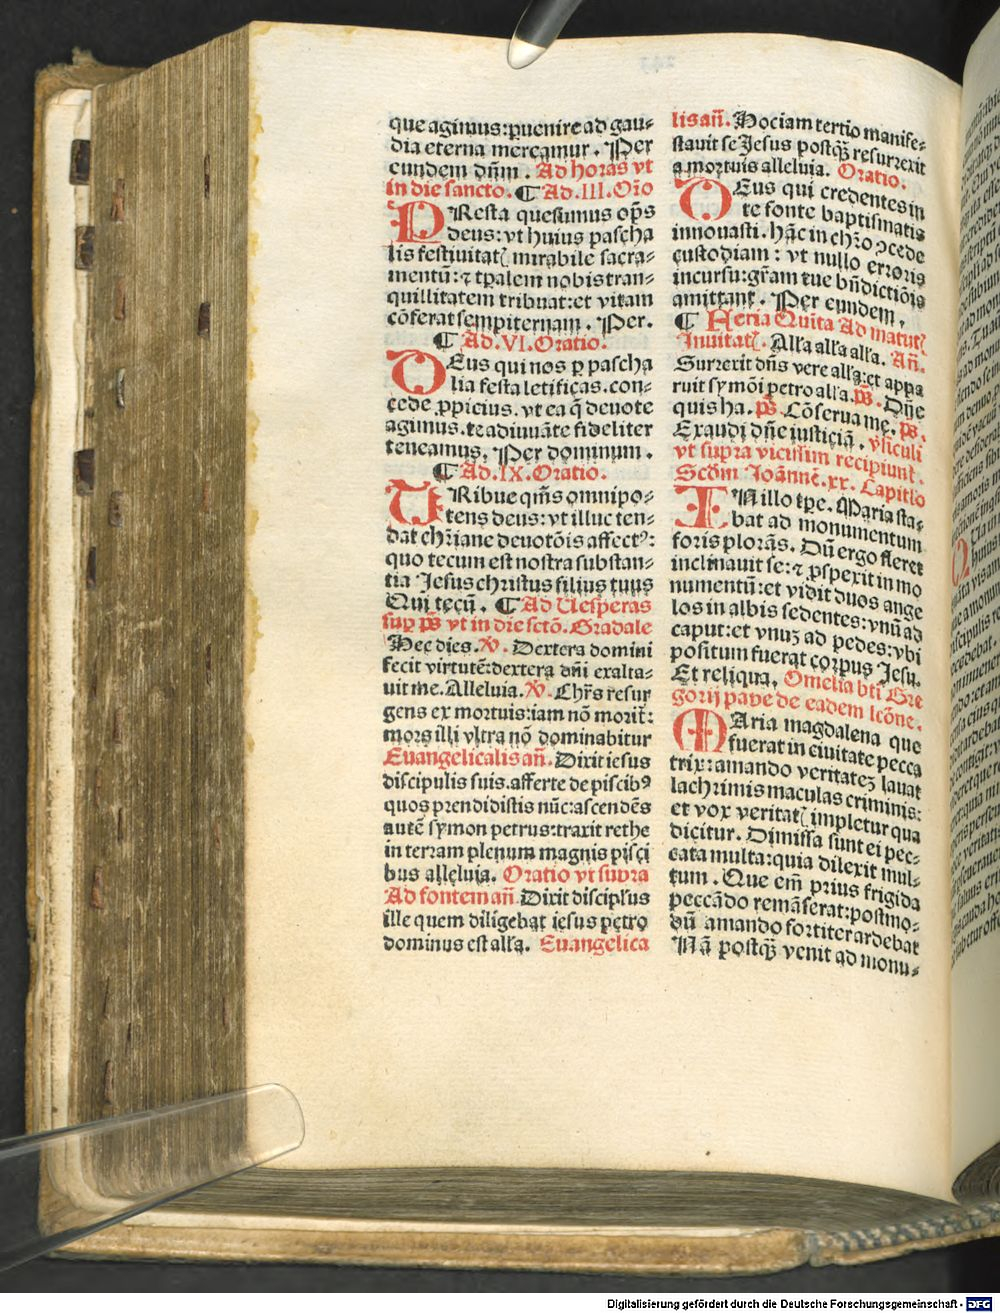 que agimus: ꝑuenire ad gau⸗
dia eterna mereamur. Per
eundem dñm. Ad horas vt
in die sancto. ¶ Ad .III. Oro
PResta quesumus oꝑs
deus: vt huius pascha
lis festiuitatꝭ mirabile sacra⸗
mentū: ⁊ tꝑalem nobis tran⸗
quillitatem tribuat: et vitam
cōferat sempiternam. Per.
¶ Ad .VI. Oratio.
DEus qui nos ꝑ pascha
lia festa letificas. con⸗
cede ꝓpicius. vt ea q̄ deuote
agimus. te adiuuāte fideliter
teneamus, Per dominum.
¶ Ad .IX. Oratio.
TRibue qm̄s omnipo⸗
tens deus: vt illuc ten⸗
dat chr̄iane deuotōis affectꝰ:
quo tecum est nostra substan⸗
tia Jesus christus filius tuus
Qui tecū. ¶ Ad Uesperas
suꝑ ps̄ vt in die sctō. Gradale
Hec dies. ℣. Dextera domini
fecit virtutē: dextera dn̄i exalta⸗
uit me. Alleluia. ℣. Chr̄s resur
gens ex mortuis: iam nō morit̄:
mors illi vltra nō dominabitur
Euangelicalis an̄. Dixit iesus
discipulis suis. afferte de piscibꝰ
quos prendidistis nūc: ascendēs
autē symon petrus: traxit rethe
in terram plenum magnis pisci
bus alleluia. Oratio vt supra
Ad fontem an̄ Dixit discipl'us
ille quem diligebat iesus petro
dominus est all'a. Euangelica
lis an̄. Hoc iam tertio manife⸗
stauit se Jesus postqꝫ resurrexit
a mortuis alleluia. Oratio.
DEus qui credentes in
te fonte baptismatis
innouasti. hāc in chr̄o ꝯcede
custodiam: vt nullo erroris
incursu: gr̄am tue bn̄dictiōis
amittant. Per eundem,
¶ Feria Quīta Ad matutꝭ
Inuitatꝭ. All'a all'a all'a. An̄.
Surrexit dn̄s vere all'a: et appa
ruit symōi petro all'a. ps̄. Dn̄e
quis ha. ps̄. Cōserua me. ps̄.
Exaudi dn̄e iusticiā. v̄siculi
vt supra vicissim recipiunt̄.
Scdm̄ Joānnē. xx. Capitl'o
IN illo tꝑe. Maria sta⸗
bat ad monumentum
foris plorās. Dū ergo fleret
inclinauit se: ⁊ ꝓspexit in mo
numentū: et vidit duos ange
los in albis sedentes: vnū ad
caput: et vnuꝫ ad pedes: vbi
positum fuerat corpus Jesu.
Et reliqua. Omelia btī Gre
gorij pape de eadem lcōne.
MAria magdalena que
fuerat in ciuitate pecca
trix: amando veritateꝫ lauat
lachrimis maculas criminis:
et vox veritatꝭ impletur qua
dicitur. Dimissa sunt ei pec⸗
cata multa: quia dilexit mul⸗
tum. Que em̄ prius frigida
peccādo remāserat: postmo⸗
dū amando fortiter ardebat
Nā postqꝫ venit ad monu⸗
Digitalisierung gefördert durch die Deutsche Forschungsgemeinschaft - DFG